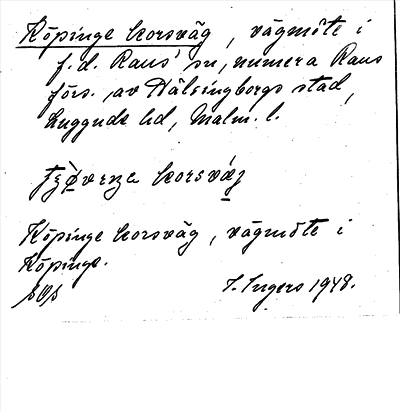 Köpinge korsväg, vägmöte i
f.d. Raus' sn, numera Raus
förs. av Hälsingborgs stad,
Luggude hd, Malm. l.
korsväg
Köpinge korsväg, vägmöte i
Köpinge.
I. Ingers 1948.